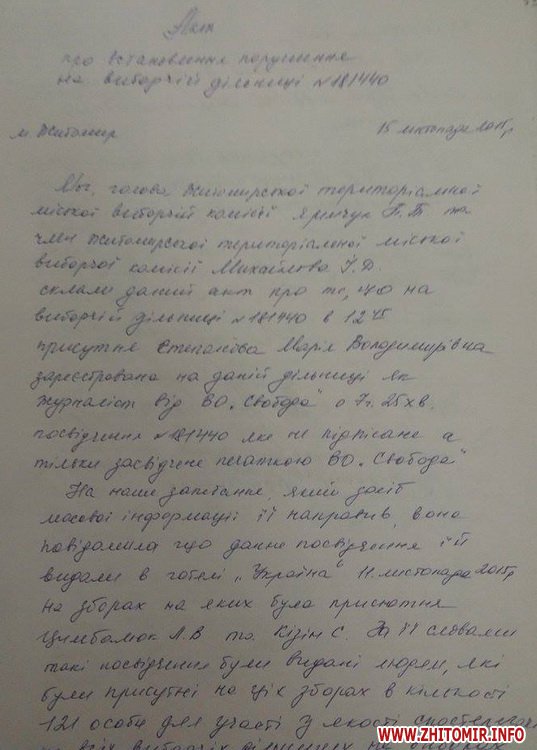 Акт
про встановлення порушення
на виборчій дільниці №181440
м. Житомир 15 листопада 2015р
Мы, голова Житомирської територіальної
міської виборчій комісії Яринчук Г.Т та
член Житомирської територіальної міської
виборчої комісії Михайлова І.Д.
склали даний акт про те, що на
виборчій дільниці №181440 в 12 45
присутня Степанова Марія Володимирівна
зареєстрована на даній дільниці як
журналіст від ВО „Свобода" о 7г. 25хв.
посвідчення №181440 яке не підписане а
тільки засвідчене печаткою ВО „Свобода"
На наше запитання, який засіб
масової інформації її направив, вона
повідомила що данне посвідчення їй
видали в готелі „Україна" 11. листопада 2015р
на зборах на яких була присютня
Цимбалюк Л.В та Кізін С. За її словами
такі посвідчення були видані людям, які
були присутні на ціх зборах в кількості
121 особи для участі у якості спостерегачі
на всіх виборчих дільницях
WWW.ZHITOMIR.INFO